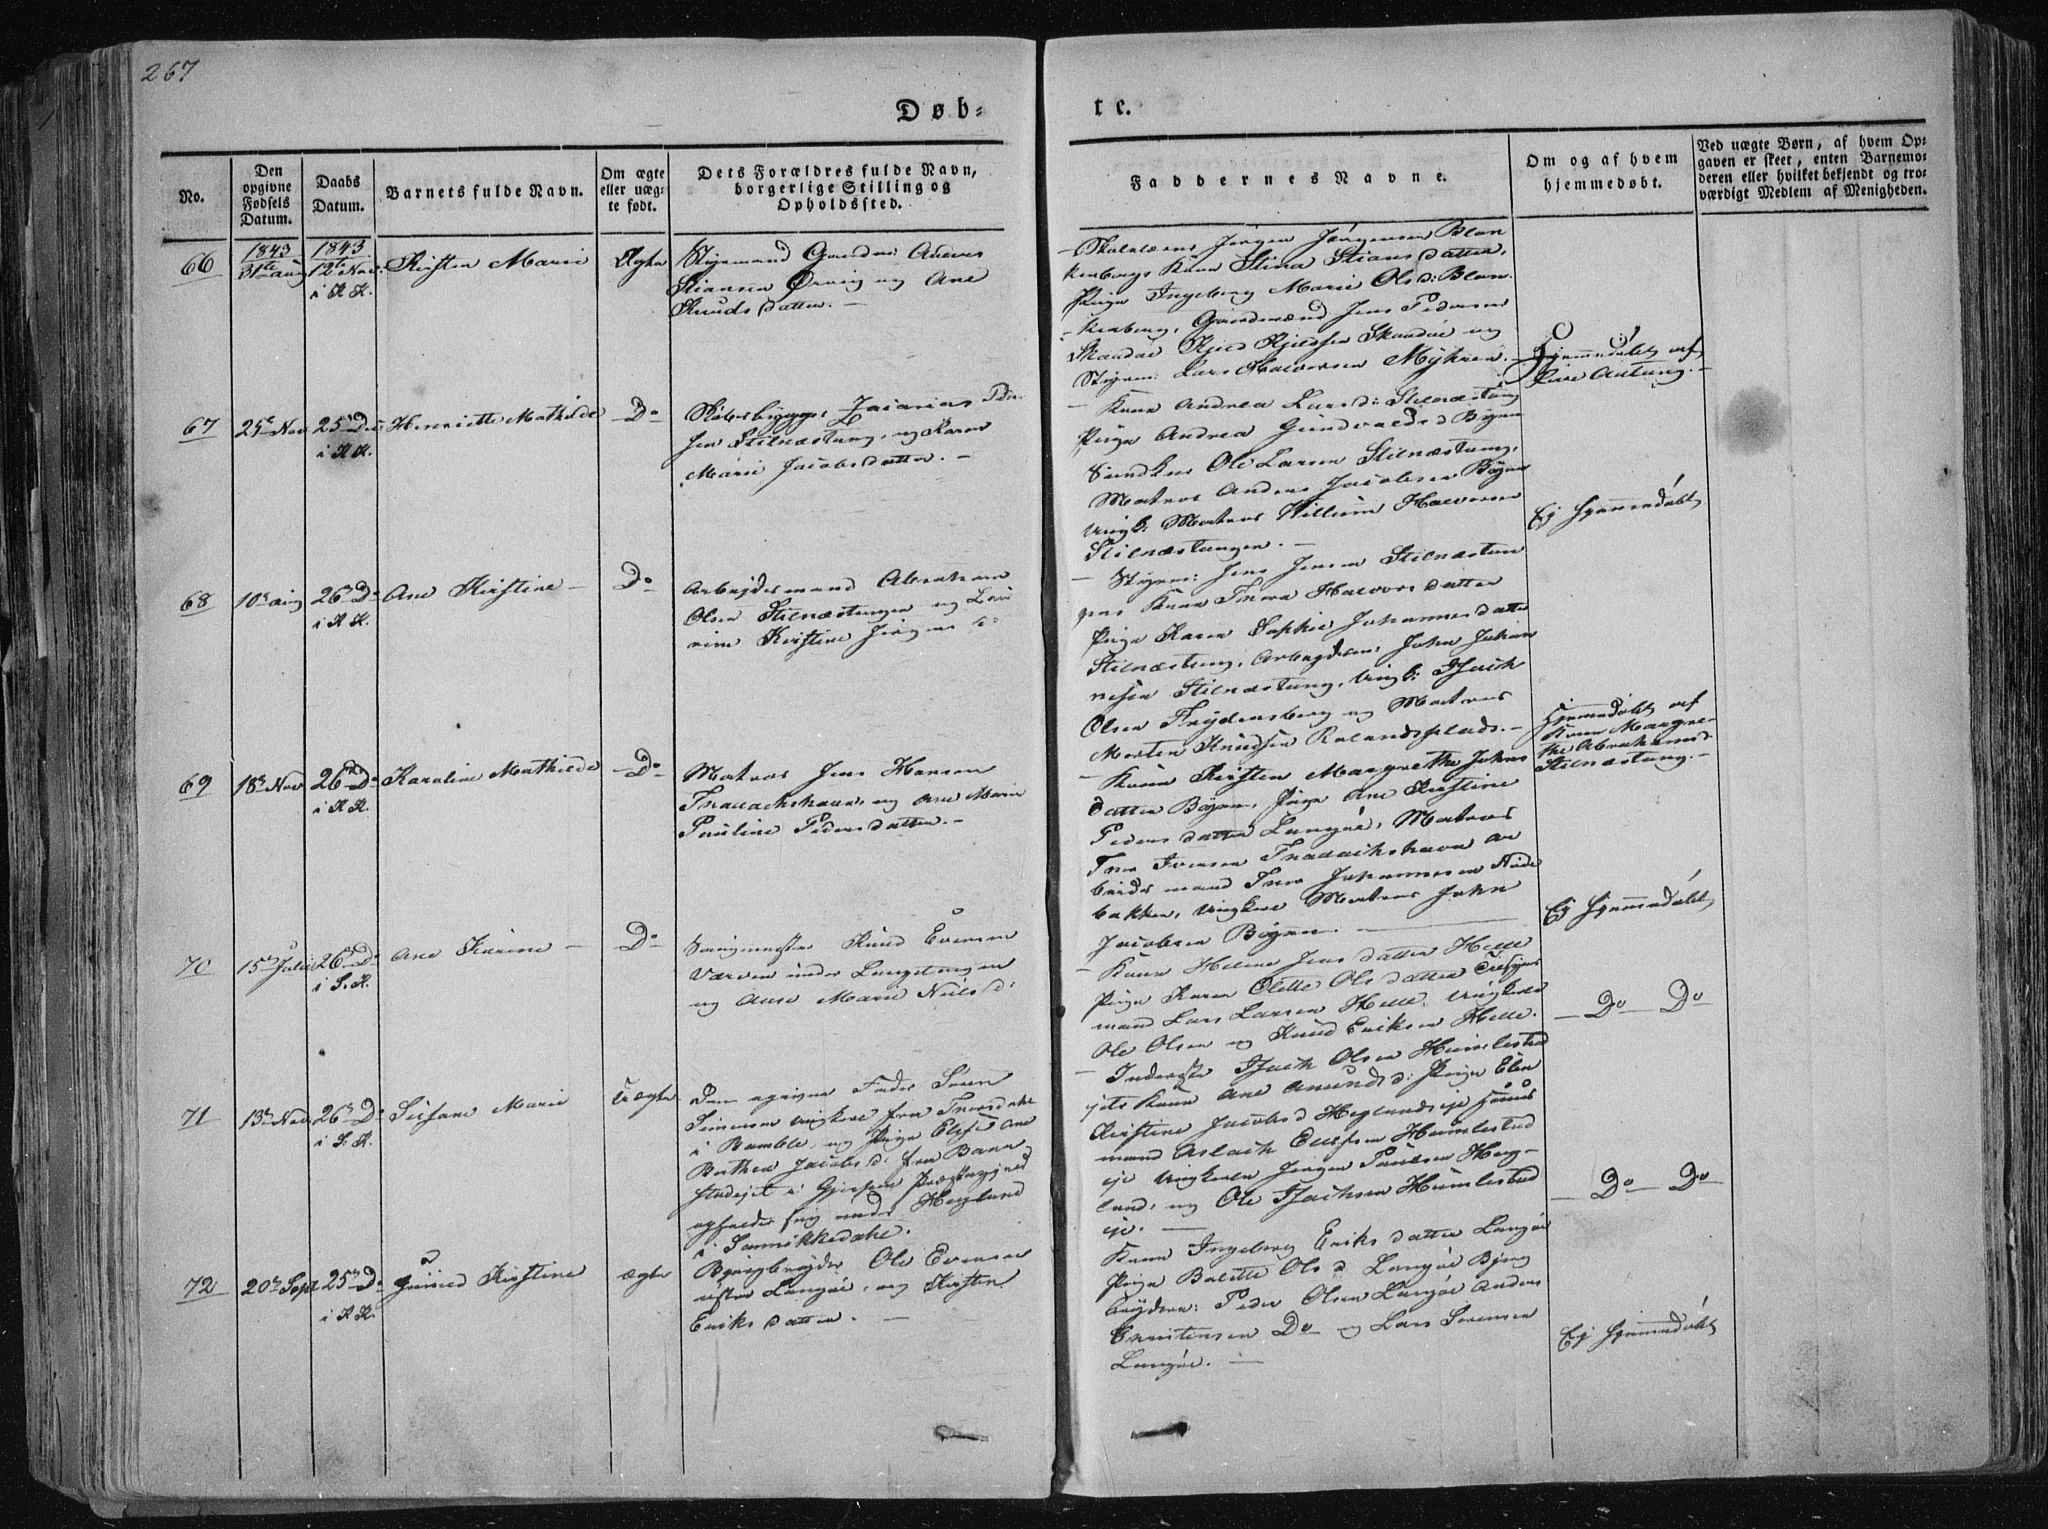 267
Døb-
te.
No.
Den opgivne Fødsels Datum.
Daabs Datum.
Barnets fulde Navn.
Om ægte eller uægte født.
Dets Forældres fulde Navn, borgerlige Stilling og Opholdssted.
Faddernes Navne.
Om og af hvem hjemmedøbt.
Ved uægte Børn, af hvem Opgaven er skeet, enten Barnemoderen eller hvilket bekjendt og troværdigt Medlem af Menigheden.
66
1843
31te Aug
1843
12te Nov.
i K K.
Kirsten Marie
Ægte
Anders
Stiansen Ørvig og Ane
Knudsdatter. —
Jørgen Jørgensen Blan
kenbergs Kone Stina Stiansdatter,
Pige Ingeborg Marie Olsd: Blan
kenberg, Gaardmænd Jens Pedersen
Skaadøe Kjeld Kjeldsen Skaadøe og
Lars Halvorsen Myhren. —
Hjemmedøbt af
67
25e Nov
25de De
i K K.
Henriette Mathilde
Do
Zacarias
sen Stilnæstang, og Karen
Marie Jacobsdatter. —
Kone Andrea Larsd: Stilnæstang
Pige Andrea
Ole Larsen Stilnæstang,
Matros Anders Jacobsen Bøyen
Matros Willum Halvorsen
Stilnæstangen. —
Ej hjemmedøbt
68
10de Aug
26de D
i K K.
Ane Kirstine —
Do
Arbejdsmand Abraham
Olsen Stilnæstangen og
Kirstine
Jens Jensen Stilnæstan
gens Kone Thora Halvorsdatter
Pige Karen Sophie Johannesdatter
Stilnæstang, Arbejdsm: John Johan
nesen Stilnæstang, Ungk: Isach
Olsen Frydensberg og Matros
Morten Knudsen Rolandsplads. —
Hjemmedøbt af
Kone Margre-
the Abrahamsd
Stilnæstang. —
69
18de Nov
26de D
i K K.
Karoline Mathilde
Do
Matros Jens Hansen
og Ane Marie
Pauline Pedersdatter. —
Kone Kirsten Margrethe Johns
datter Bøyen, Pige Ane Kirstine
Pedersdatter Langøe, Matros
Thor Iversen
beidsmand Thor Johannesen
bakken, Ungkarl Matros John
Jacobsen Bøyen. —
Ej hjemmedøbt
70
15de Juli
26de D
i S. K.
Ane Karine —
Do
Knud Evensen
Værven under Langetangen
og Anne Marie Nielsd:
Kone Helene Jensdatter Helle
Pige Karen Olette Olsdatter
mand Lars Larsen Helle, Ungkarle
Ole Olsen og Knud Eriksen Helle.
— Do — Do
71
13de Nov
26de D
i S. K.
Susane Marie
Uægte
Den opgivne Fader Søren
Simonsen Ungkarl fra
i Bamble, og Pige
Bathea Jacobsd: fra
i Gjerpen Præstegjeld
opholder sig under Hegland
i Sannikkedahl.
Inderste Isach Olsen Humlestad
ejets Kone Ane Amundsd: Pige Elen
Kirstine Jacobsd Heglandseje
mand Aslach Humlestad
eje Ungkarlen Jørgen Paulsen Heg-
land, og Ole Isachsen Humlestad
eje. —
— Do — Do
72
20de Sept
25de D
i K K.
Kirstine
ægte
Bjergbryder Ole Evensen
Langøe, og Kirsten
Eriksdatter. —
Kone Ingeborg Eriksdatter Langøe
Pige Bolette Olsd Langøe Bjerg
bryderne: Peder Olsen Langøe Anders
Christensen Do og Lars Sørensen
Langøe. —
Ej hjemmedøbt